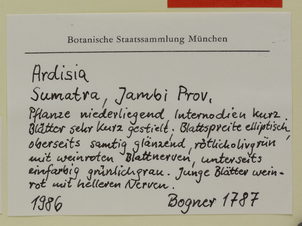 Botanische Staatssammlung München
Ardisia
Sumatra, Jambi Prov.
Pflanze niederliegend Internodien kurz.
Blätter sehr kurz gestielt. Blattspreite elliptisch,
oberseits samtig glänzend, rötlicholivgrün
mit weinroten Blattnerven, unterseits
einfarbig grünlichgrau. Junge Blätter wein-
rot mit helleren Nerven.
1986 Bogner 1787